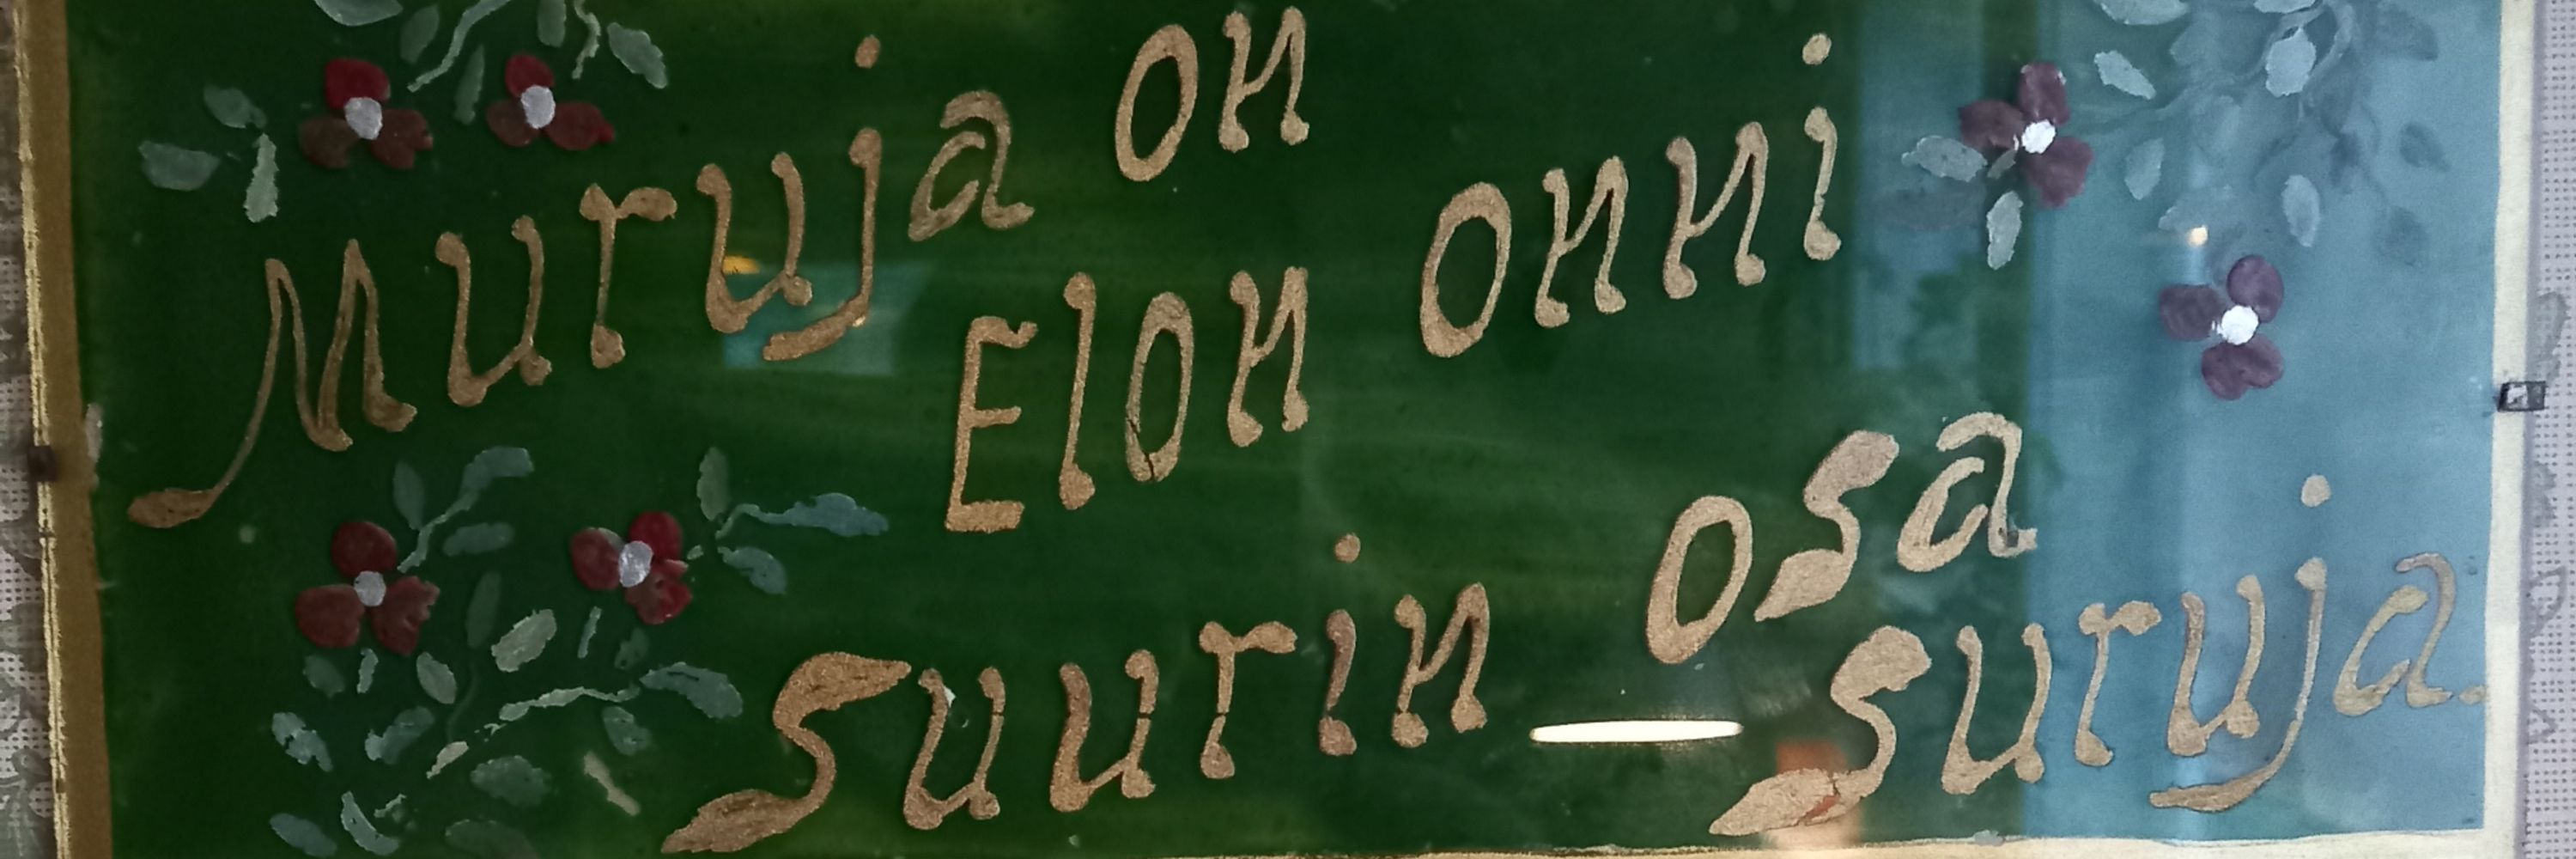 Muruja on
Elon onni
Suurin osa
suruja.